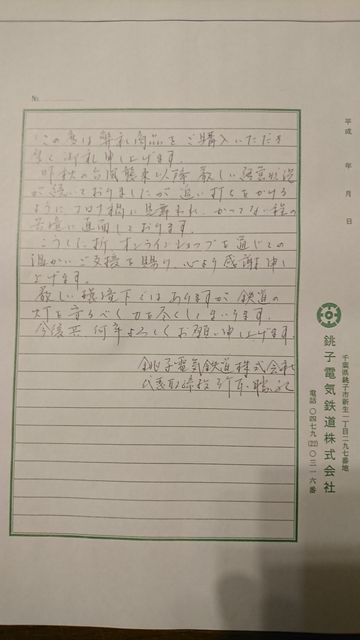 No.
この度は弊社商品をご購入いただき
厚く御礼申し上げます。
昨秋の台風襲来以降 厳しい経営状況
が続いておりましたが 追い打ちをかける
ようにコロナ禍に見舞われ、かつてない程の
苦境に直面しております。
こうした折、オンラインショップを通じての
温かいご支援を賜り、心より感謝申し
上げます。
厳しい環境下ではありますが、鉄道の
灯を守るべく力を尽くしてまいります。
今後共 何卒よろしくお願い申し上げます。
銚子電気鉄道株式会社
代表取締役 竹本勝紀
平成 年 月 日
銚子電気鉄道株式会社
千葉県銚子市新生一丁目二九七番地
電話〇四七九(22)〇三一六番